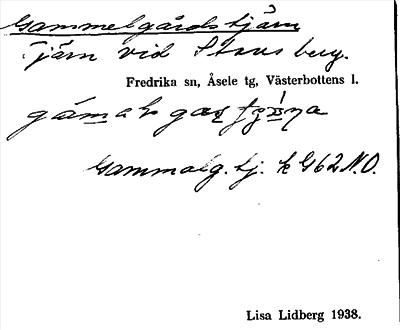 Gammelgårdstjärn
Tjärn vid Stensberg.
Fredrika sn, Åsele tg, Västerbottens l.
Gammalg. tj. k G62 N.O.
Lisa Lidberg 1938.